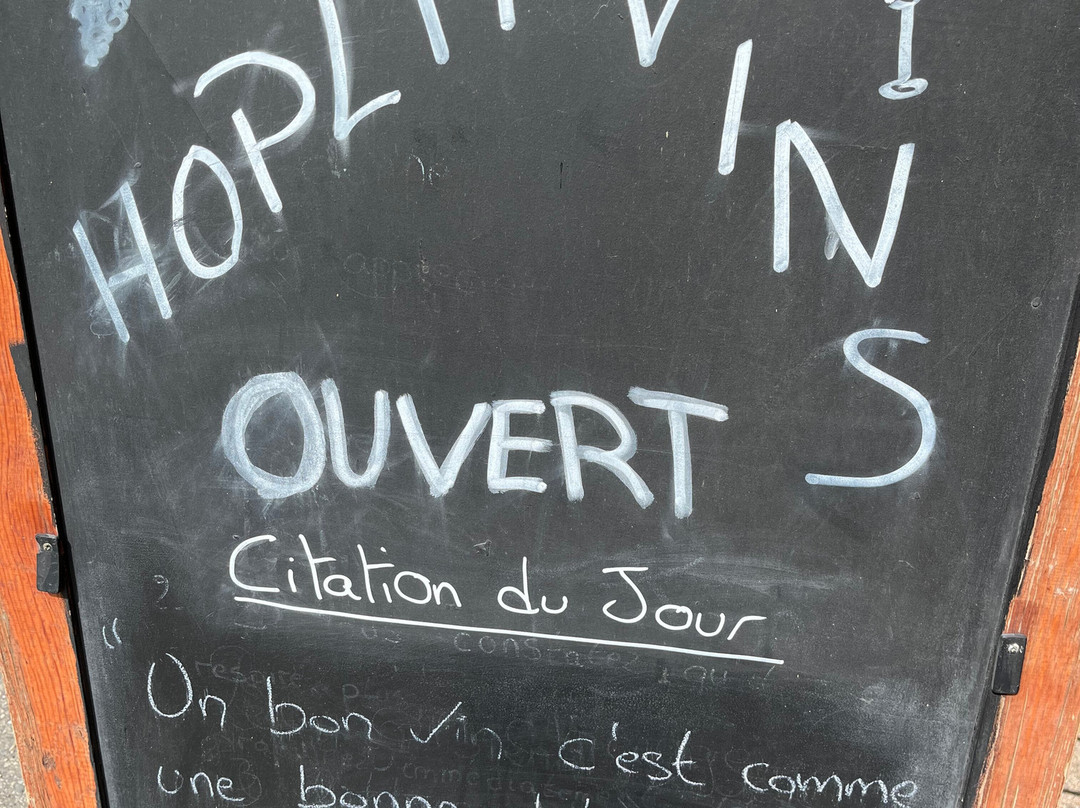 HOPL VINS
OUVERT
Citation du Jour
“ Un bon vin c'est comme
une bonne